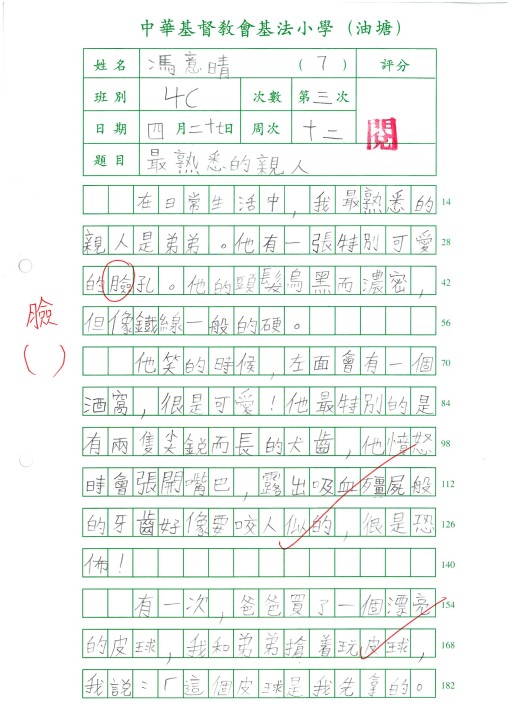 中華基督教會基法小學（油塘）
姓名 馮意晴 （7） 評分
班別 4C 次數 第三次
日期 四月二十七日 周次 十二
閱
題目 最熟悉的親人
在日常生活中，我最熟悉的 14
親人是弟弟。他有一張特別可愛 28
的臉孔。他的頭髮烏黑而濃密， 42
臉
但像鐵線一般的硬。 56
（ ）
他笑的時候，左面會有一個 70
酒窩，很是可愛！他最特別的是 84
有兩隻尖銳而長的犬齒，他憤怒 98
時會張開嘴巴，露出吸血殭屍般 112
的牙齒好像要咬人似的，很是恐 126
佈！ 140
有一次，爸爸買了一個漂亮 154
的皮球，我和弟弟搶着玩皮球， 168
我說：「這個皮球是我先拿的。 182